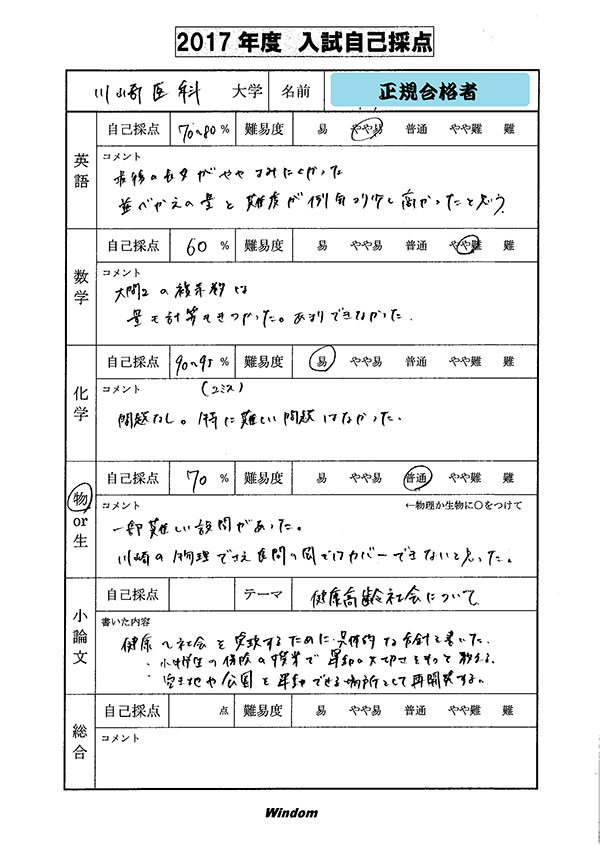 2017年度 入試自己採点
川崎医科 大学 名前 正規合格者
英語
自己採点 70~80 % 難易度 易 やや易 普通 やや難 難
コメント
最後の長文がやや よみにくかった
並べかえの量と難度が例年より少し高かったと思う
数学
自己採点 60 % 難易度 易 やや易 普通 やや難 難
コメント
大問2の複素数は
量も計算もきつかった。あまりできなかった.
化学
自己採点 90~95 % 難易度 易 やや易 普通 やや難 難
コメント (2ミス)
問題なし。特に難しい問題はなかった.
物or生
自己採点 70 % 難易度 易 やや易 普通 やや難 難
コメント ←物理か生物に○をつけて
一部難しい設問があった。
川崎の物理でさえ良問の風ではカバーできないと思った。
小論文
自己採点 テーマ 健康高齢社会について
書いた内容
健康 社会を実現するために、具体的な方針を書いた.
・小中学生の保険の授業で運動の大切さをもって教える.
・空き地や公園を運動できる場所として再開発する.
総合
自己採点 点 難易度 易 やや易 普通 やや難 難
コメント
Windom